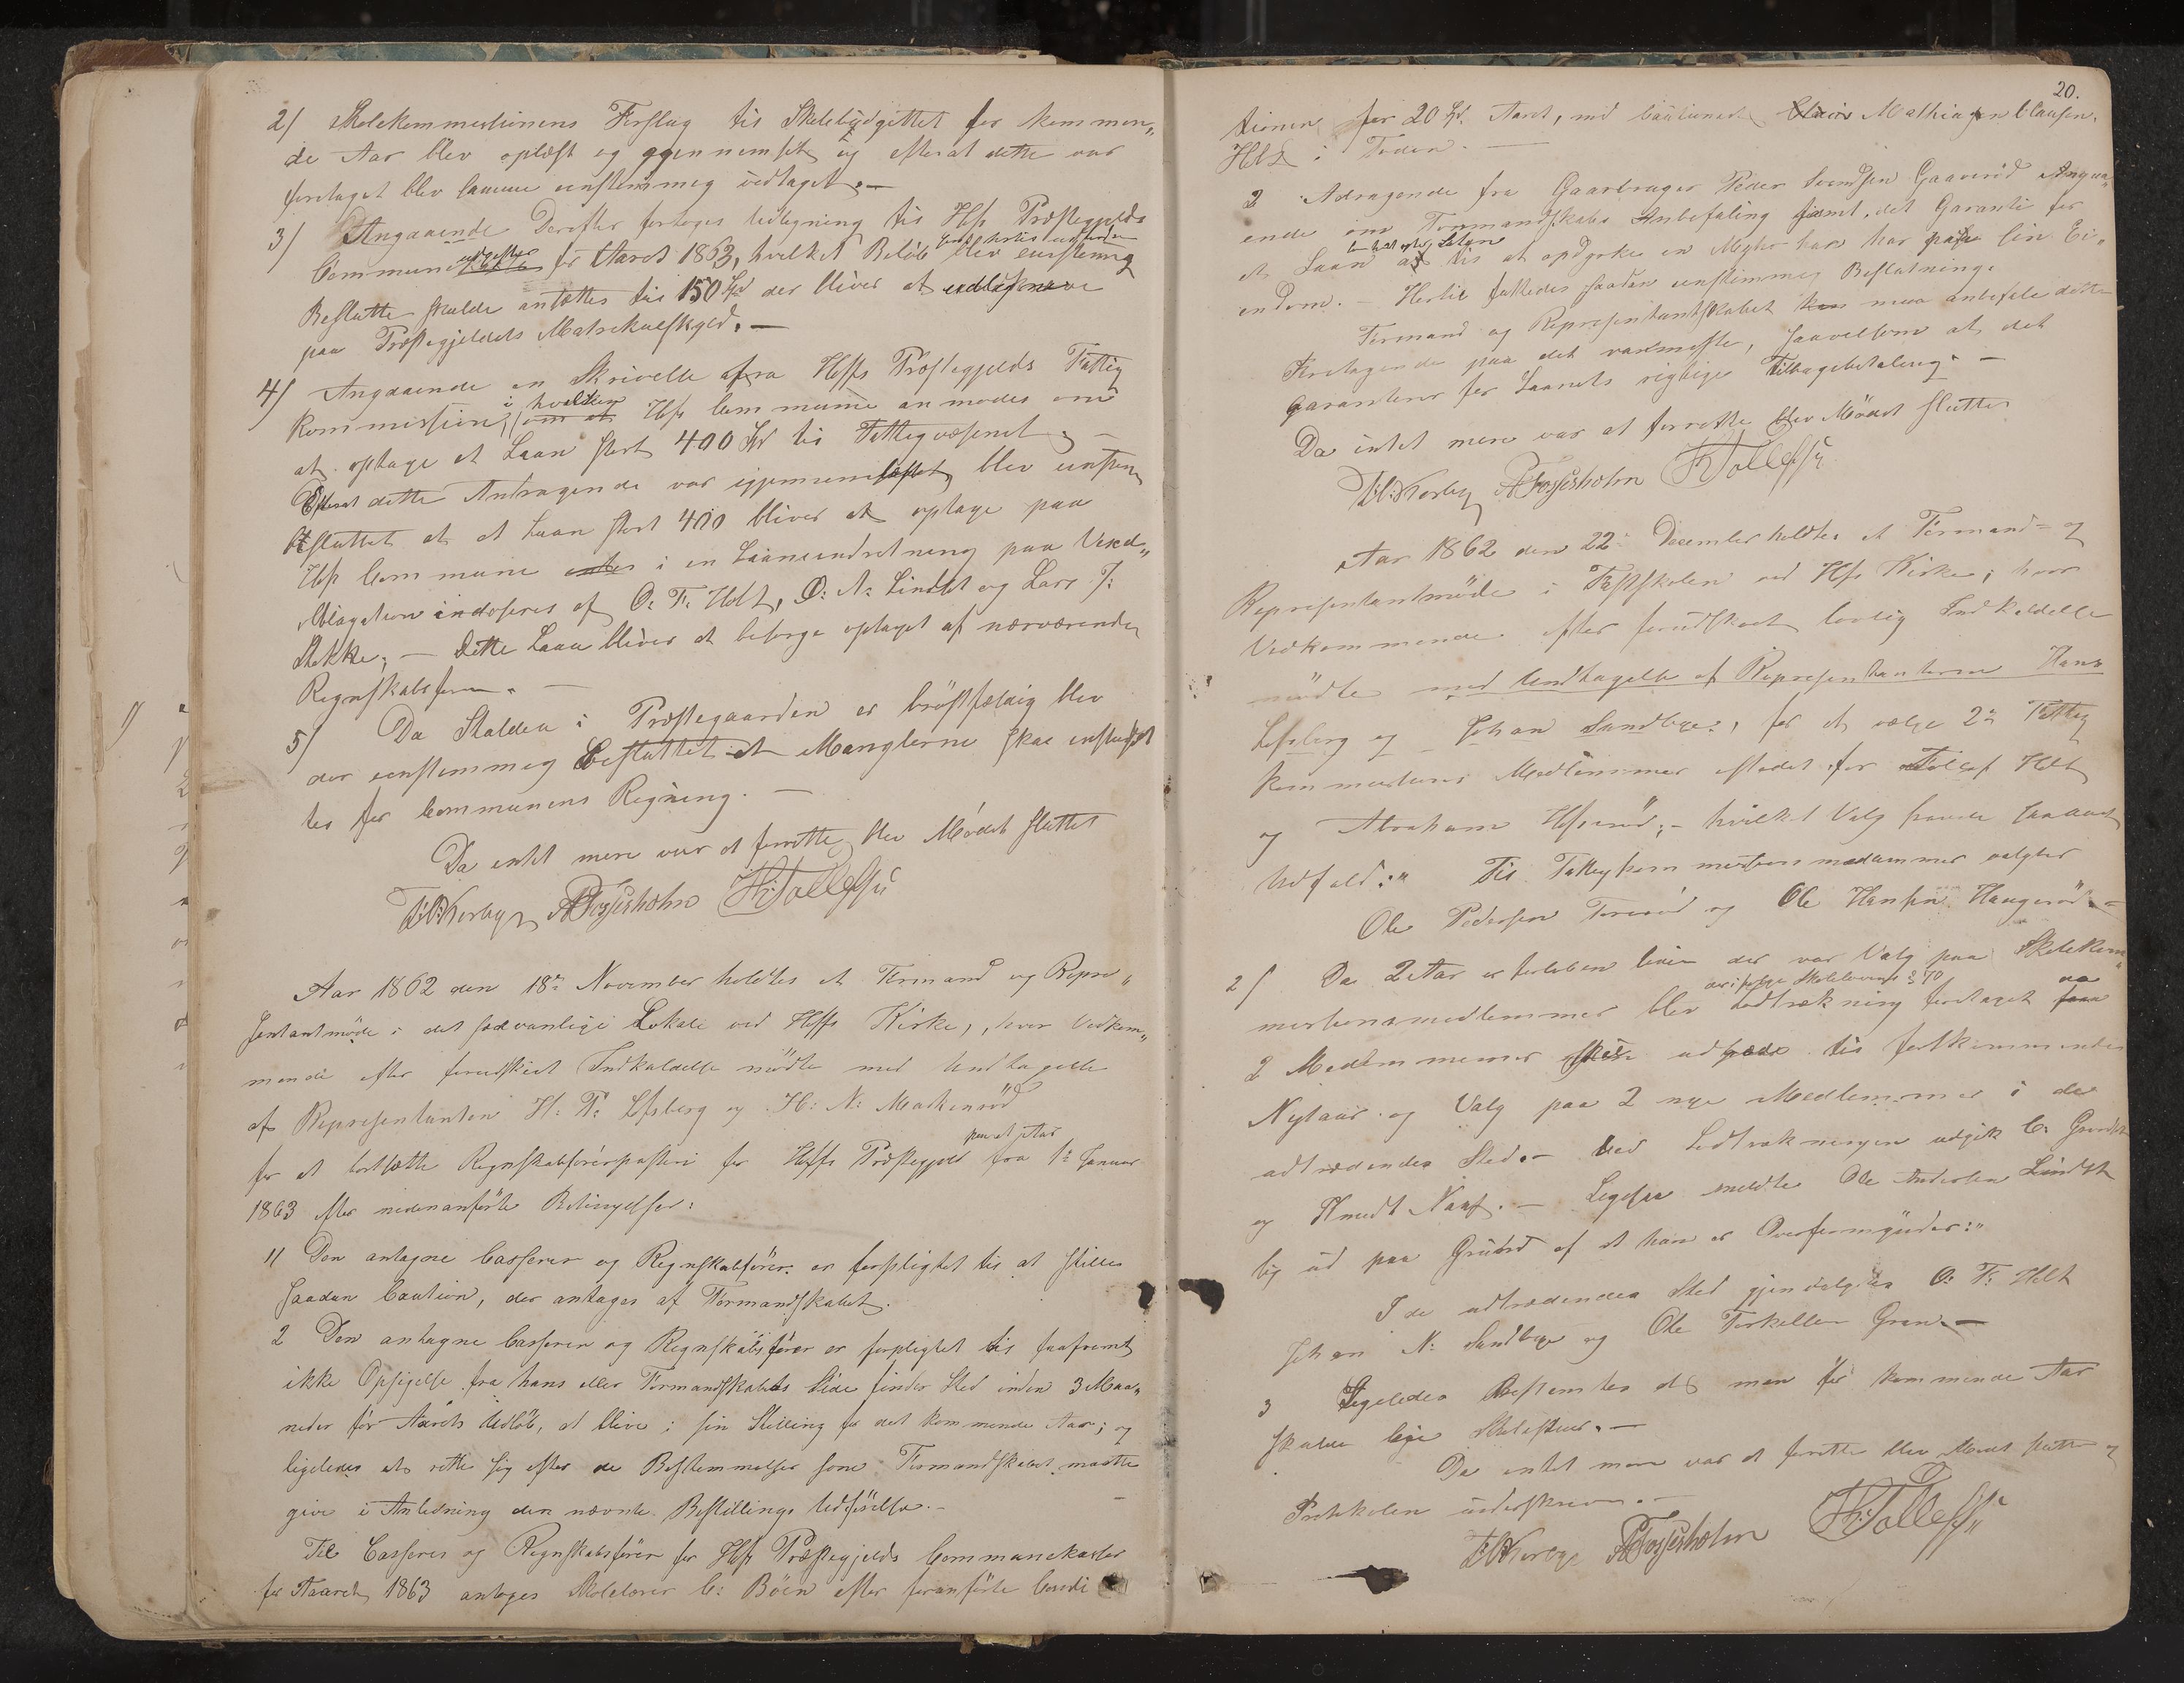 2/ Skolekommisionens Forslag til Skolebudgettet for kommen„
de Aar blev oplæst og gjennemset og efterat dette var
foretaget blev samme eenstemmig vedtaget. —
3/ Angaaende Derefter foretoges Udligning til Hofs Præstegjelds
Communeudgifter for Aaret 1863, hvilket Beløb blev eenstemmig
Besluttet skulde ansættes til 150 Spd der bliver at udlignes
paa Præstegjeldets Matrikulskyld. —
4/ Angaaende en Skrivelse fra Hoffs Præstegjelds Fattig
Kommission, i hvilken om at Hofs Commune anmodes om
at optage et Laan stort 400 Spd til Fattigvæsenet, —
Efterat dette Andragende var igjennemlæst, blev eenstem
Besluttet at et Laan stort 400 bliver at optage paa
Hofs Commune i en Laaneindretning paa Vexel„
obligation indoseres af O: F: Holt, O: A: Lindst og Lars J:
Stokke; — Dette Laan bliver at besørge optaget af nærværende
Regnskabsfører. —
5/ Da Stalden i Præstegaarden er brøstfældig blev
der eenstemmig Besluttet at Manglerne skal istandsæt
tes for Communens Regning. —
Da intet mere var at forrette blev Mødet sluttet
A Fossesholm H: Tollefsen
Aar 1862 den 18de November holdtes et Formand og Repre„
sentantmøde i det sædvanlige Lokale ved Hoffs Kirke, hvor Vedkom„
mende efter forudskeet Indkaldelse mødte med Undtagelse
af Representanten H: P: Efsberg og H: N: Markerød
for at bortsætte Regnskabsførerposten for Hoffs Præstegjeld paa et Aar fra 1te Januar
1863 efter nedenanførte Betingelser:
1/ Den antagne Casserer og Regnskabsfører er forpligtet til at stille
saadan Caution, der antages af Formandskabet.
2 Den antagne Casserer og Regnskabsfører er forpligtet til saafremt
ikke Opsigelse fra hans eller Formandskabets Side finder Sted inden 3 Maa„
neder før Aarets Udløb, at blive i sin Stilling for det kommende Aar; og
ligeledes at rette sig efter de Bestemmelser som Formandskabet maatte
give i Anledning den nævnte Bestillings Udførelse. —
Til Casserer og Regnskabsfører for Hofs Præstegjelds Communekasser
for Aaret 1863 antages Skolelærer C: Böen efter foranførte Condi
20.
tioner for 20 Spd. Aaret, med Cautionist Mathias Clausen
Holt i Foden. —
3 Andragende fra Gaardbruger Peder Svendsen Gaaserød Angaa„
ende om Formandskabets Anbefaling samt det Garanti for
et Laan til at opdyrke en Myhr han har paa sin Ei„
endom. — Hertil fattedes saadan eenstemmig Beslutning.
Formand og Representantskabet maa anbefale dette
Foretagende paa det varmeste, saavelsom at det
garanterer for Laanets rigtige Tilbagebetaling. —
Da intet mere var at forrette blev Mødet sluttet
A Fossesholm H: Tollefsen
Aar 1862 den 22de December holdtes et Formand- og
Representantmøde i Fastskolen ved Hofs Kirke; hvor
Vedkommende efter forudskeet lovlig Indkaldelse
mødte med Undtagelse af Representanterne Hans
Efsberg og Johan Sundbye:, for at vælge 2de Fattig
kommissions Medlemmer istedet for Tollef Holt
og Abraham Hoserød; — hvilket Valg havde saadant
Udfald:„ Til Fattigkommissionsmedlemmer valgtes
Ole Pedersen Torerød og Ole Hansen Haugerød. —
2/ Da 2 Aar er forløben siden der var Valg paa Skolekom„
missionsmedlemmer blev der i følge Skolelovens § 70 Lodtrækning foretaget
2 Medlemmer udtræde til forstkommende
Nytaar og Valg paa 2 nye Medlemmer i de
udtrædendes Sted. — Ved Lodtrækningen udgik C:
og Knudt Naas. — Ligesaa meldte Ole Andersen Lindst
sig ud paa Grund af at han er Overformynder:„
I de udtrædendes Sted gjenvalgtes O: F: Holt
Johan N: Sundbye og Ole Torkelsen Gran. —
3 Ligeledes Bestemtes at man for kommende Aar
skulde leje Skolestuer. —
Da intet mere var at forrette blev Mødet sluttet og
Protokolen underskreven. —
A Fossesholm H: Tollefsen